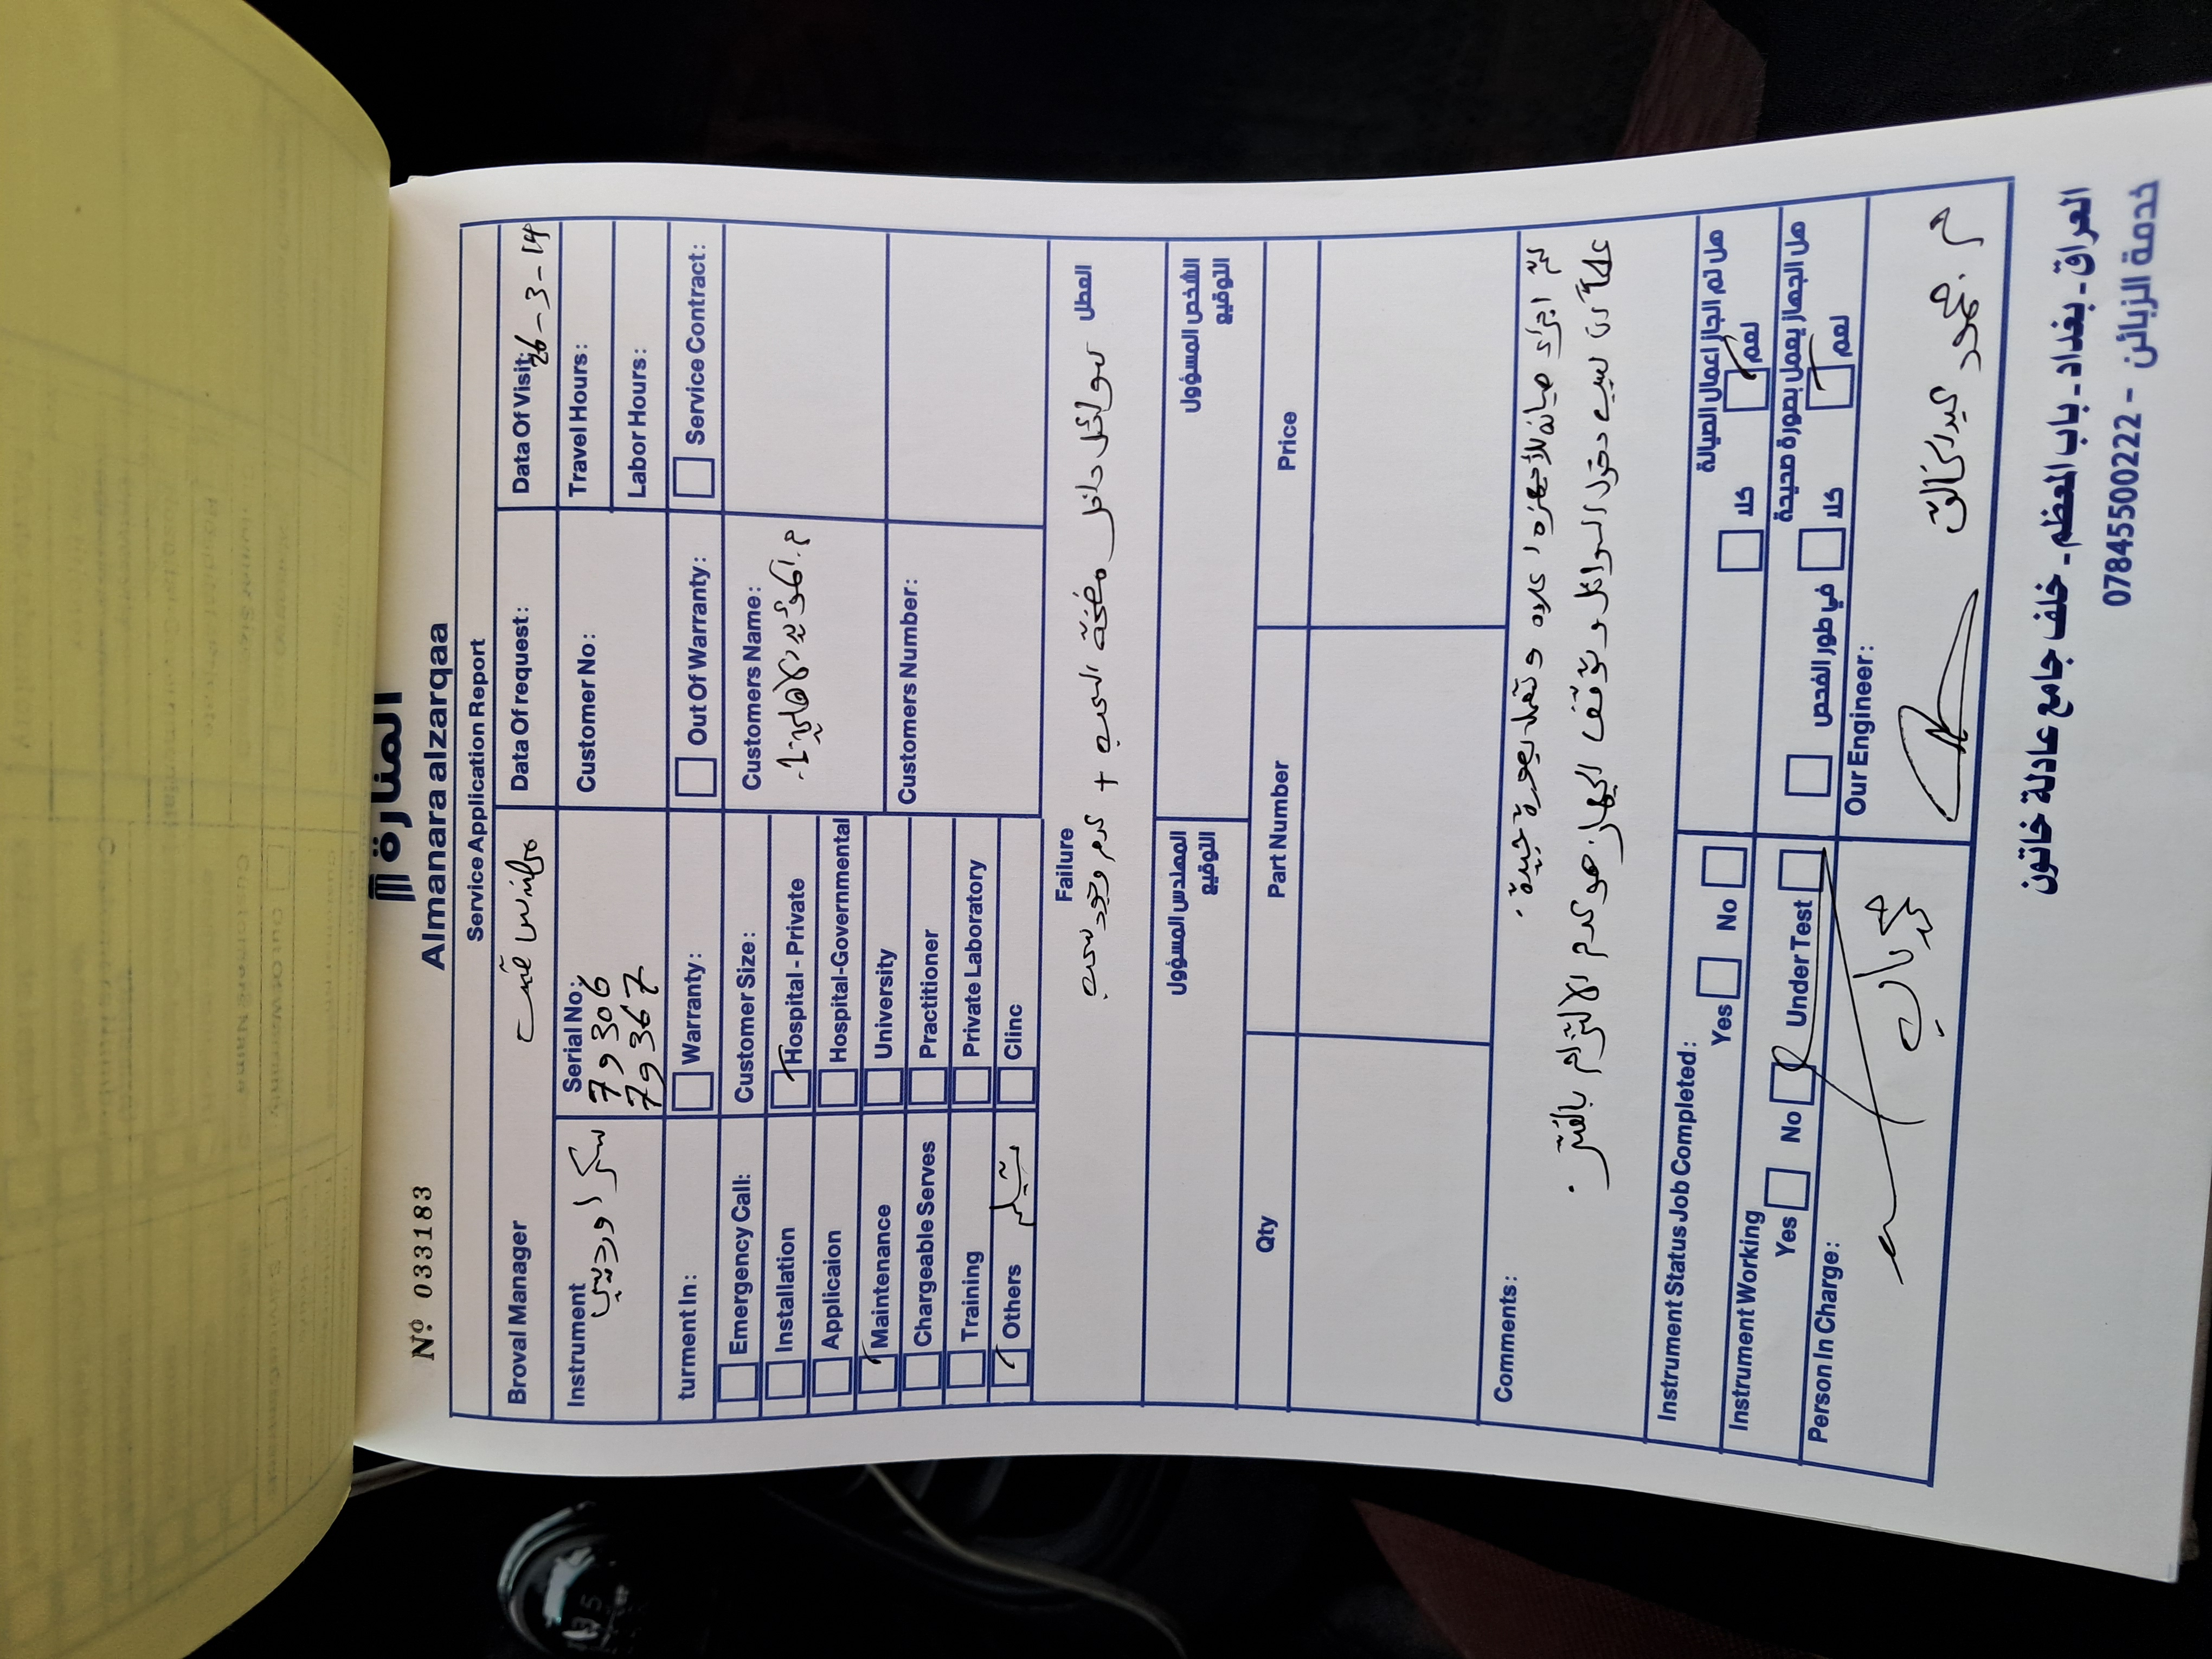 Nº 033183
المنارة
Almanara alzarqaa
Service Application Report
Broval Manager
Data Of request:
Data Of Visit: 26-3-14
Instrument
Serial No:
79306
79367
Customer No:
Travel Hours:
Labor Hours:
turment In:
Warranty:
Out Of Warranty:
Service Contract:
Emergency Call:
Customer Size:
Customers Name:
Installation
Hospital - Private
Applicaion
Hospital-Governmental
Maintenance
University
Customers Number:
Chargeable Serves
Practitioner
Training
Private Laboratory
Others
Clinc
Failure
العطل
سوائل داخل مضخة السحب + عدم وجود سحب
المهندس المسؤول
التوقيع
الشخص المسؤول
التوقيع
Qty
Part Number
Price
Comments:
تم اجراء صيانة للأجهزة اعلاه وتعمل بصورة جيدة.
علماً ان سبب دخول السوائل وتوقف الجهاز هو عدم الالتزام بالفلتر.
Instrument Status Job Completed:
Yes
No
هل تم انجاز اعمال الصيانة
كلا
نعم
Instrument Working
Yes
No
Under Test
هل الجهاز يعمل بصورة صحيحة
في طور الفحص
كلا
نعم
Person In Charge:
Our Engineer:
م. محمود عبدالخالق
العراق - بغداد - باب المعظم - خلف جامع عادلة خاتون
خدمة الزبائن - 07845500222